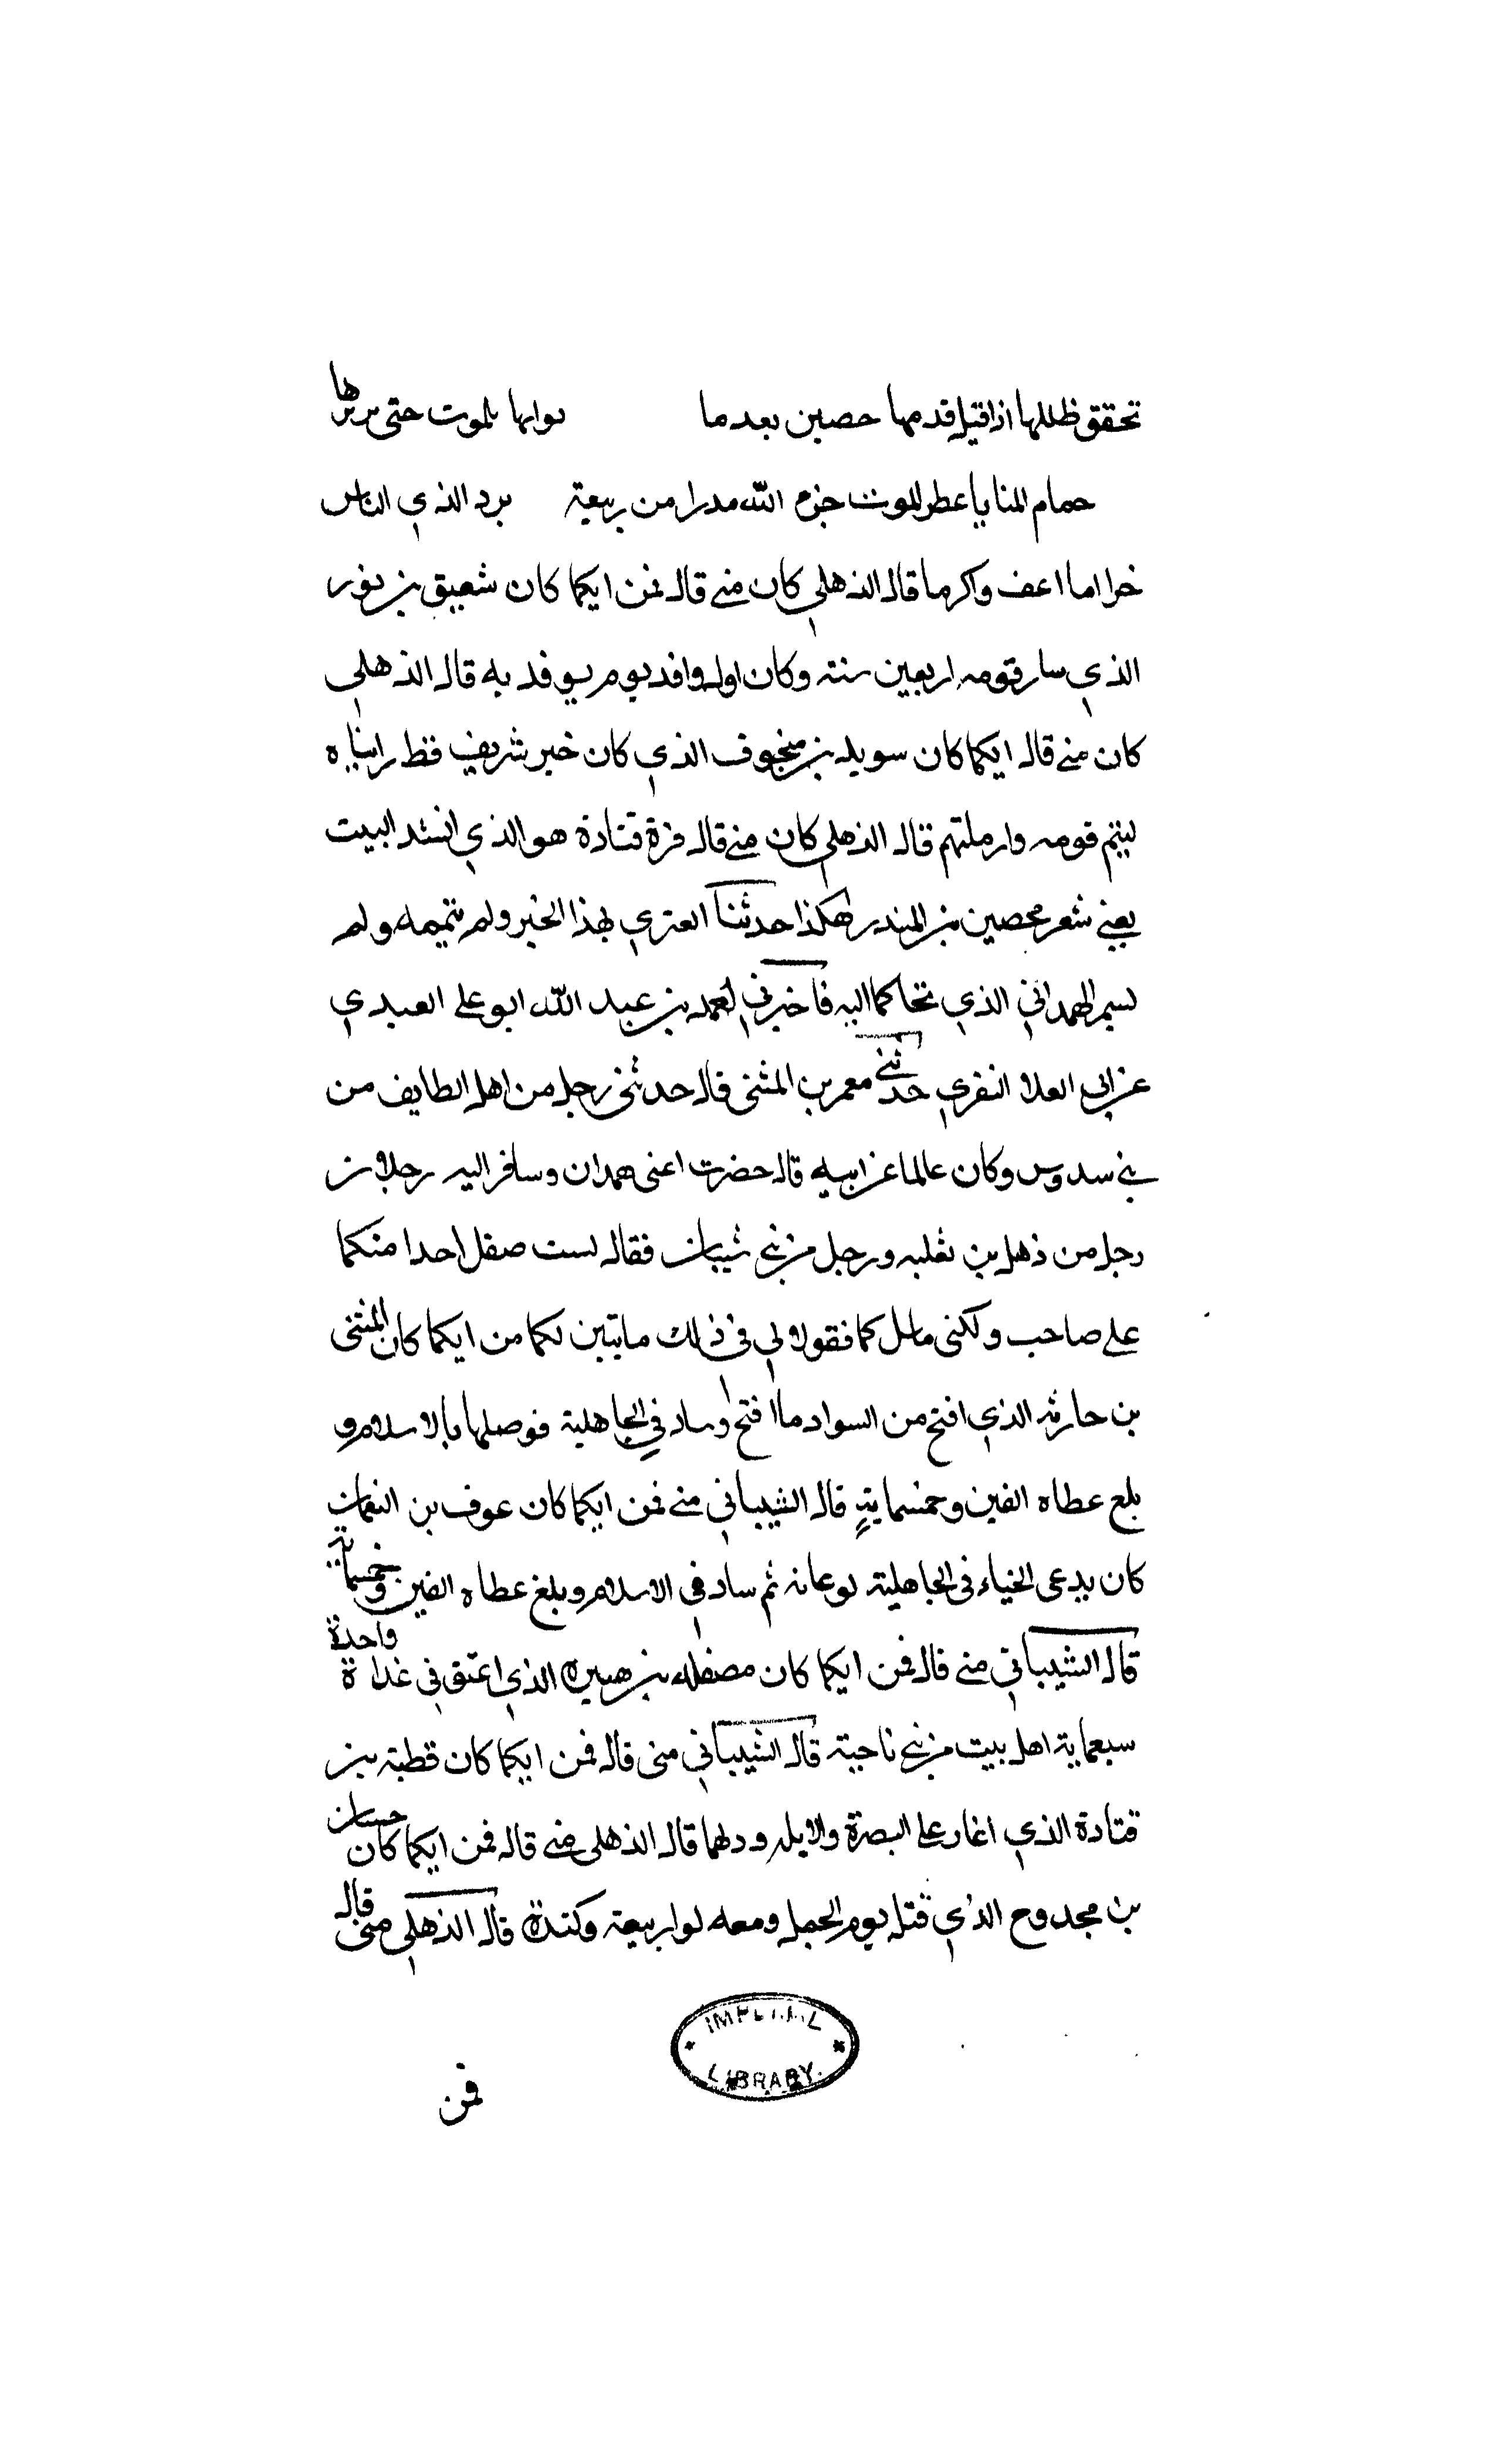 تحقق ظللها اذا قيل قدمها حصين بعد ما بوابها بلموت حتى
حمام المنايا عطر للموت جزم الله مدرا من ربيعة برد الذي الناس
خرا اما اعف واكرما قال الذهلي كان مني قال فمن ايكما كان شعيق بن نور
الذي سار قومه اربعين سنته وكان اول وافد يوم يوفد به قال الذهلي
كان مني قال ايكما كان سويد بن منجوف الذي كان خير شريف قط راناه
ليتم قومه وارملتهم قال الذهلي كان مني قال فزة قتادة هو الذي انشد البيت
يعني شعر محصين بن المنذر هكذا حدثنا العتري بهذا الخبر ولم يتميمه ولم
لسم الهمداني الذي تحاكما اليه فاخبرني لعمد بن عبد الله ابو علي العبدي
عن ابي العلا النفري حدثني معمر بن المثنى قال حدثني رجل من اهل الطايف من
بني سدوس وكان عالما عن ابيه قال حضرت اعنى همدان وسافر اليه رجلان
رجل من ذهل بن ثعلبه ورجل من بني شيبان فقال لست صفل احدا منكما
علي صاحب ولكني مايل كما فقولا لي في ذلك ما يتبين لكما من ايكما كان المثنى
بن حارثه الذي افتح من السواد ما افتح وساد في الجاهلية فوصلها بالاسلام و
بلع عطاه الفين وخمسماية قال الشيباني مني فمن ايكما كان عوف بن النعمان
كان يدعى الخياء في الجاهلية لوعانه ثم ساد في الاسلام وبلغ عطاه الفين وخمسماية
قال الشيباني مني قال فمن ايكما كان مصفله بن هبيره الذي اعتق في غداة واحدة
سبعماية اهل بيت من بني ناحية قال الشيباني منى قال فمن ايكما كان قطبة بن
قتادة الذي اغار علي البصرة والايله ودلهما قال الذهلي مني قال فمن ايكما كان حسان
بن مجدوح الذي قتل يوم الجمل ومعه لوا ربيعة وكندة قال الذهلي منى قال
IMPERIAL LIBRARY.
فمن